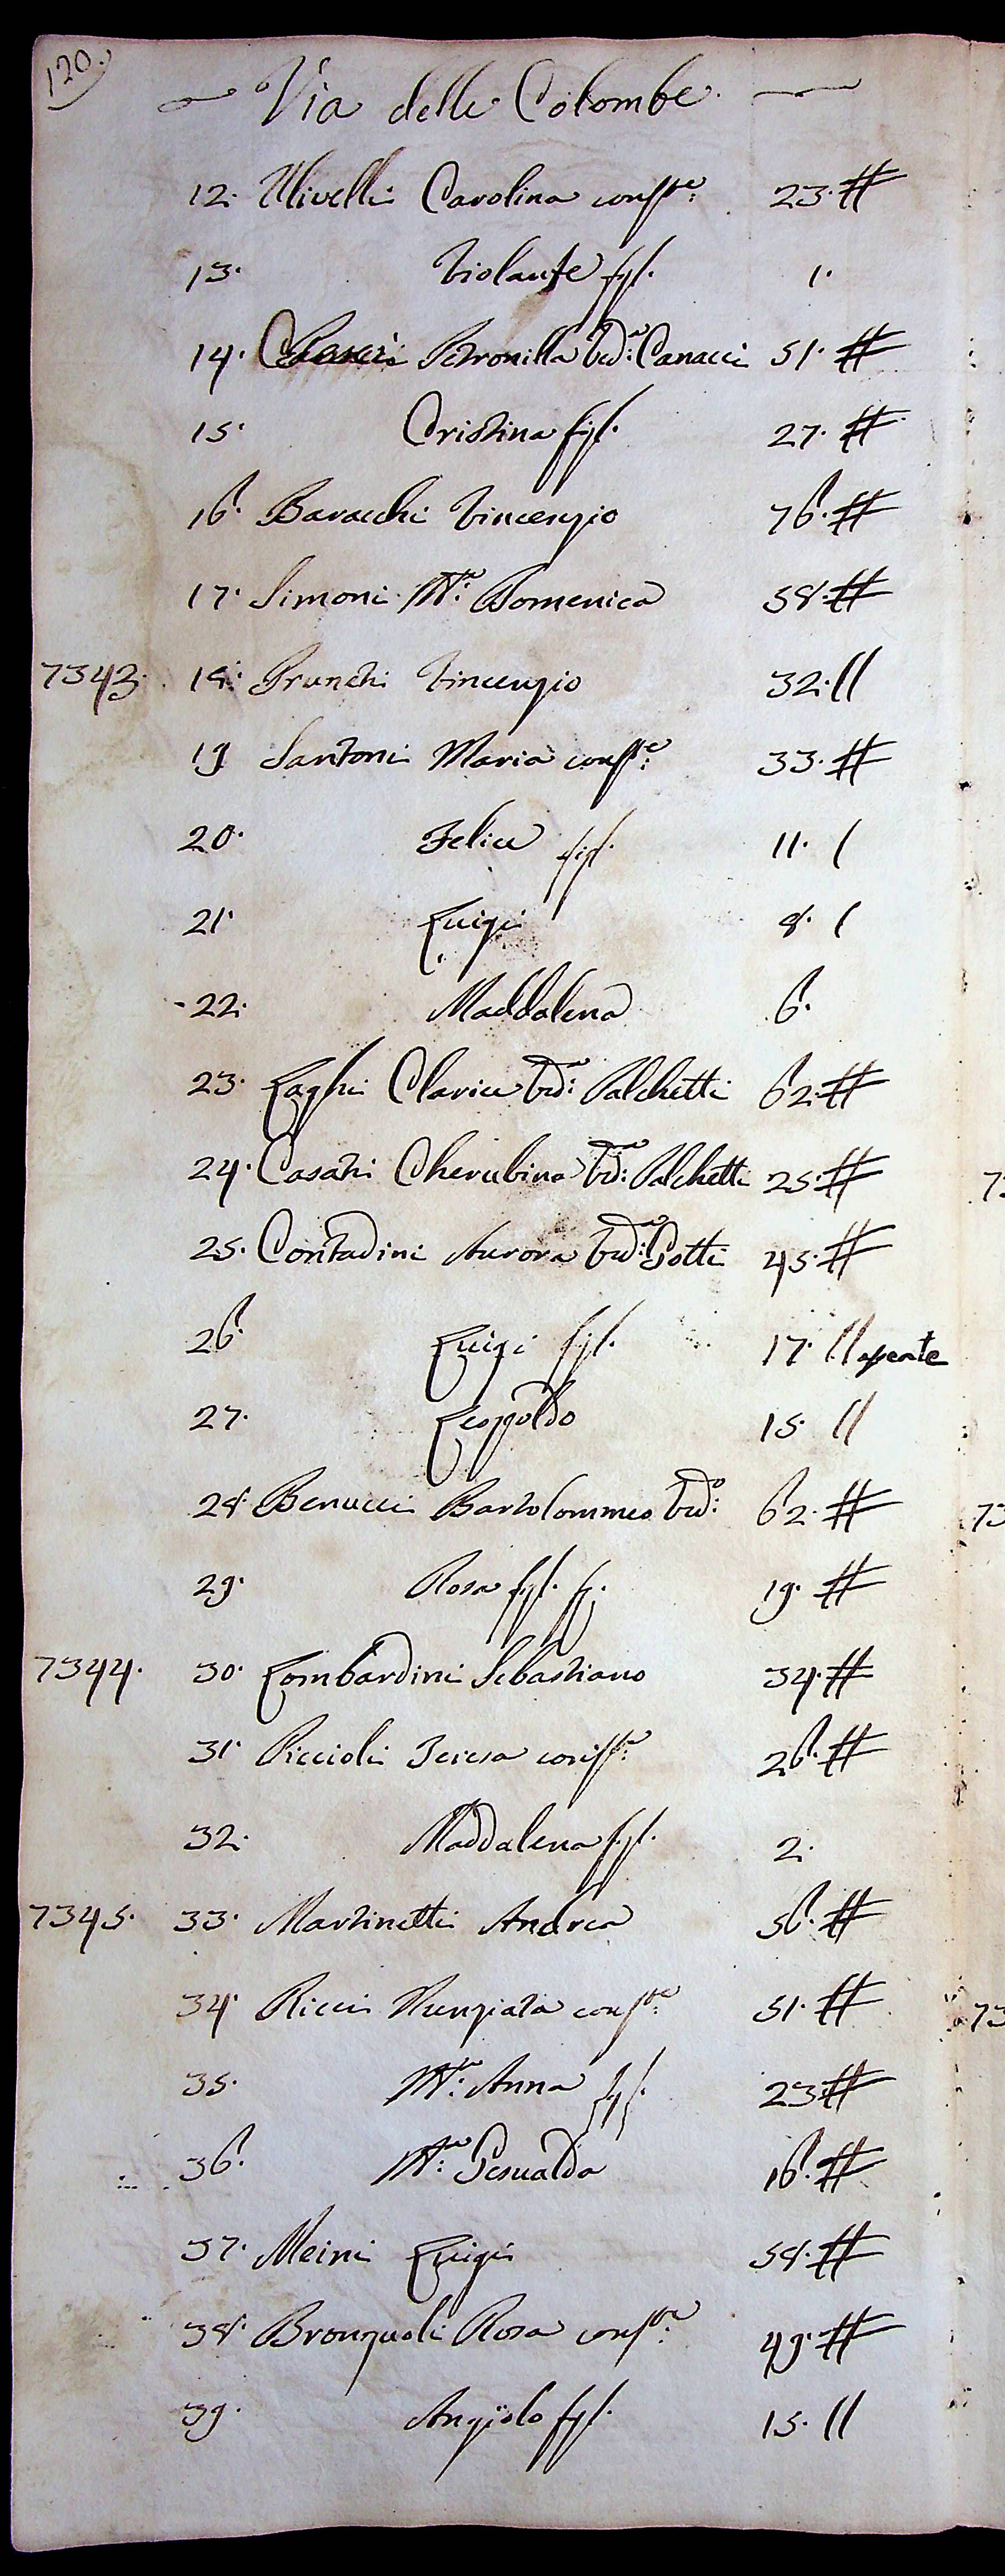 120.
Via delle Colombe.
12. Ulivelli Carolina conste: 23. #
13. Violante figl. 1.
14. Petronilla vda: Canacci 51. #
15. Cristina figl. 27. #
16. Baracchi Vincenzio 76. #
17. Simoni Ma: Domenica 58. #
7343. 18. Brunchi Vincenzio 32. //
19 Santoni Maria conste: 33. #
20. Felice figl. 11. /
21. Luigi 8. /
22. Maddalena 6.
23. Laghi Clarice vda: Palchetti 62. #
24. Casati Cherubina vda: Palchetti 25. #
25. Contadini Aurora vda: Gotti 45. #
26. Luigi figl. 17. // assente
27. Leopoldo 15. //
28. Benucci Bartolommeo vdo: 62. #
29. Rosa figl. 19. #
7344. 30. Lombardini Sebastiano 34. #
31. Riccioli Teresa conste: 26. #
32. Maddalena figl. 2.
7345. 33. Martinetti Andrea 56. #
34. Ricci Nunziata conste: 51. #
35. Ma: Anna figl. 23. #
36. Ma: Gesualda 16. #
37. Meini Luigi 58. #
38. Bronzuoli Rosa conste: 49. #
39. Angiolo figl. 15. //